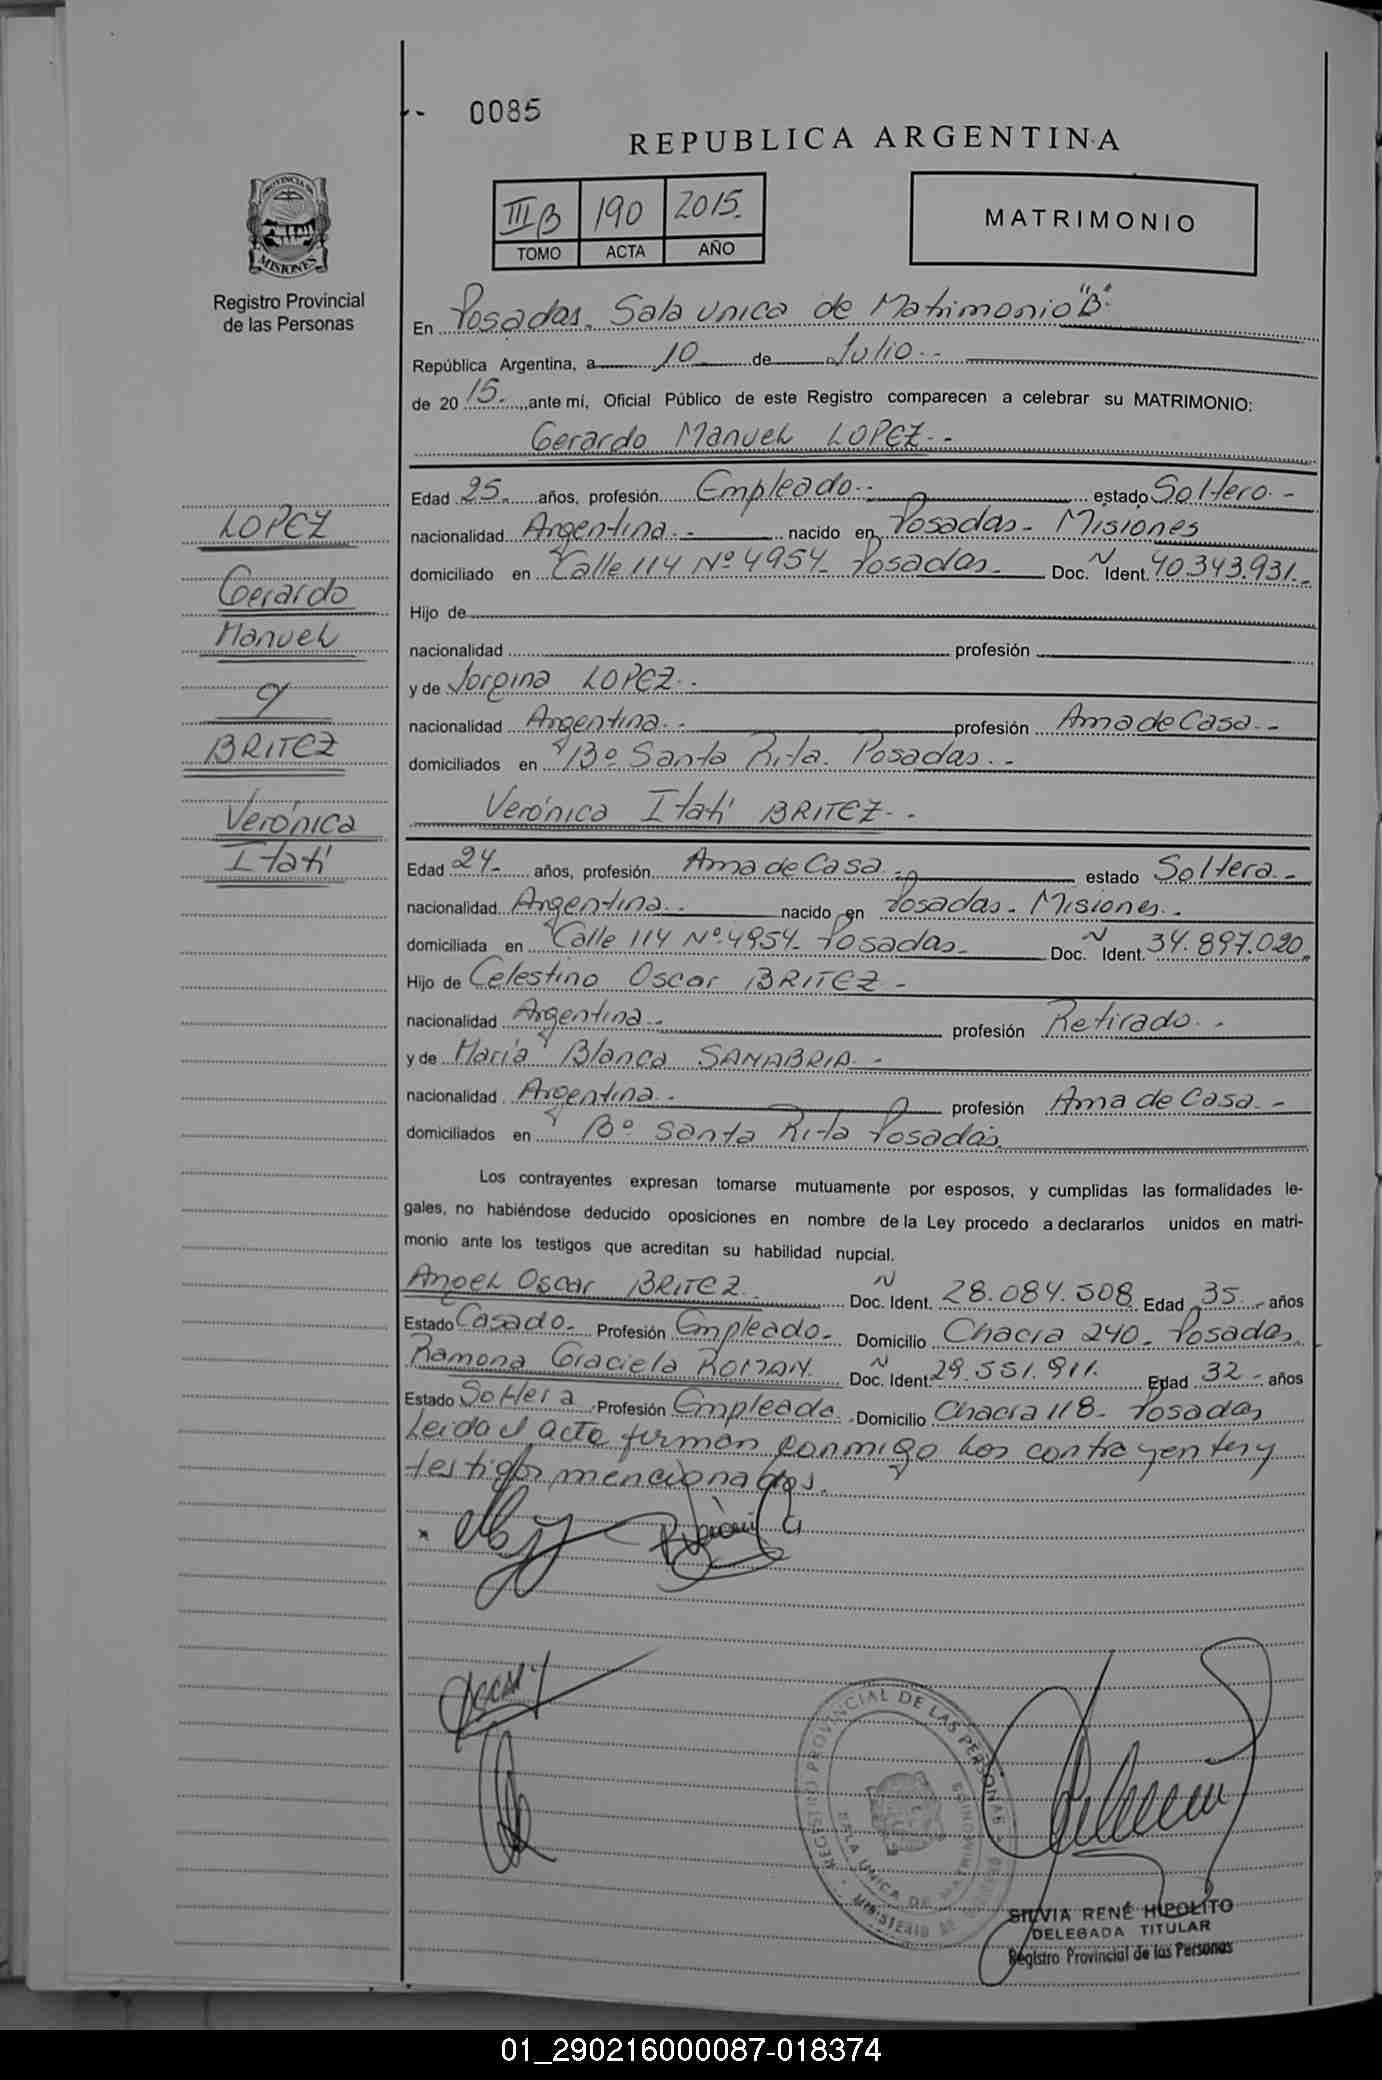 0085
REPUBLICA ARGENTINA
PROVINCIA DE
MISIONES
Registro Provincial
de las Personas
III B 190 2015.
TOMO ACTA AÑO
MATRIMONIO
En Posadas. Sala unica de Matrimonio "B".
República Argentina, a 10 de Julio.-
de 20 15.- ante mí, Oficial Público de este Registro comparecen a celebrar su MATRIMONIO:
Gerardo Manuel LOPEZ.-
LOPEZ
Gerardo
Manuel
y
BRITEZ
Verónica
Itatí
Edad 25 años, profesión Empleado.- estado Soltero.-
nacionalidad Argentina.- nacido en Posadas- Misiones
domiciliado en Calle 114 Nº 4954- Posadas- Doc. N Ident. 40.343.931.-
Hijo de
nacionalidad profesión
y de Jorgina LOPEZ.-
nacionalidad Argentina.- profesión Ama de Casa.-
domiciliados en Bº Santa Rita. Posadas.-
Verónica Itatí BRITEZ.-
Edad 24- años, profesión Ama de Casa.- estado Soltera.-
nacionalidad Argentina.- nacido en Posadas- Misiones.-
domiciliada en Calle 114 Nº 4954- Posadas- Doc. N Ident. 34.897.020.
Hijo de Celestino Oscar BRITEZ.-
nacionalidad Argentina.- profesión Retirado.-
y de María Blanca SANABRIA.-
nacionalidad Argentina.- profesión Ama de Casa.-
domiciliados en Bº Santa Rita Posadas.
Los contrayentes expresan tomarse mutuamente por esposos, y cumplidas las formalidades le-
gales, no habiéndose deducido oposiciones en nombre de la Ley procedo a declararlos unidos en matri-
monio ante los testigos que acreditan su habilidad nupcial.
Angel Oscar BRITEZ. Doc. N Ident. 28.084.508 Edad 35.- años
Estado Casado- Profesión Empleado- Domicilio Chacra 240- Posadas.
Ramona Graciela ROMAN. Doc. N Ident. 29.551.911. Edad 32- años
Estado Soltera Profesión Empleada. Domicilio Chacra 118- Posadas
Leida el acta firman conmigo los contrayentes y
testigos mencionados.
REGISTRO PROVINCIAL DE LAS PERSONAS
SALA UNICA DE MATRIMONIOS
MINISTERIO DE GOBIERNO
SILVIA RENÉ HIPOLITO
DELEGADA TITULAR
Registro Provincial de las Personas
01_290216000087-018374